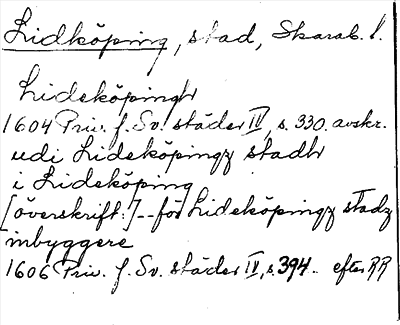 Lidköping, stad, Skarab. l.
Lideköpingh
1604 Priv. f. Sv. städer IV, s. 330. avskr.
udi Lideköpingz stadh
i Lideköping
[överskrift:] -- för Lideköpingz stadz
inbyggere
1606 Priv. f. Sv. städer IV, s. 394. efter RR